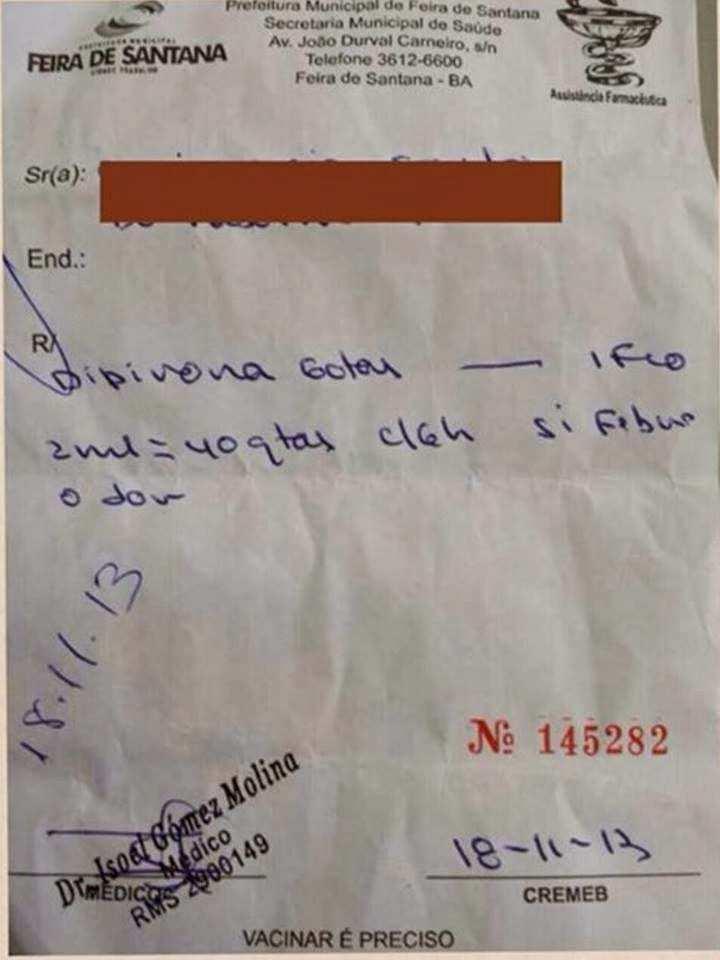 Prefeitura Municipal de Feira de Santana
Secretaria Municipal de Saúde
Av. João Durval Carneiro, s/n
Telefone 3612-6600
Feira de Santana - BA
PREFEITURA MUNICIPAL
FEIRA DE SANTANA
CIDADE TRABALHO
Assistência Farmacêutica
Sr(a):
End.:
R/
Dipirona Gotas — 1 Fco
2ml = 40 gtas c/6h si Febre
o dor
18.11.13
Nº 145282
Dr. Isoel Gómez Molina
Médico
RMS 2900149
MÉDICO
18-11-13
CREMEB
VACINAR É PRECISO